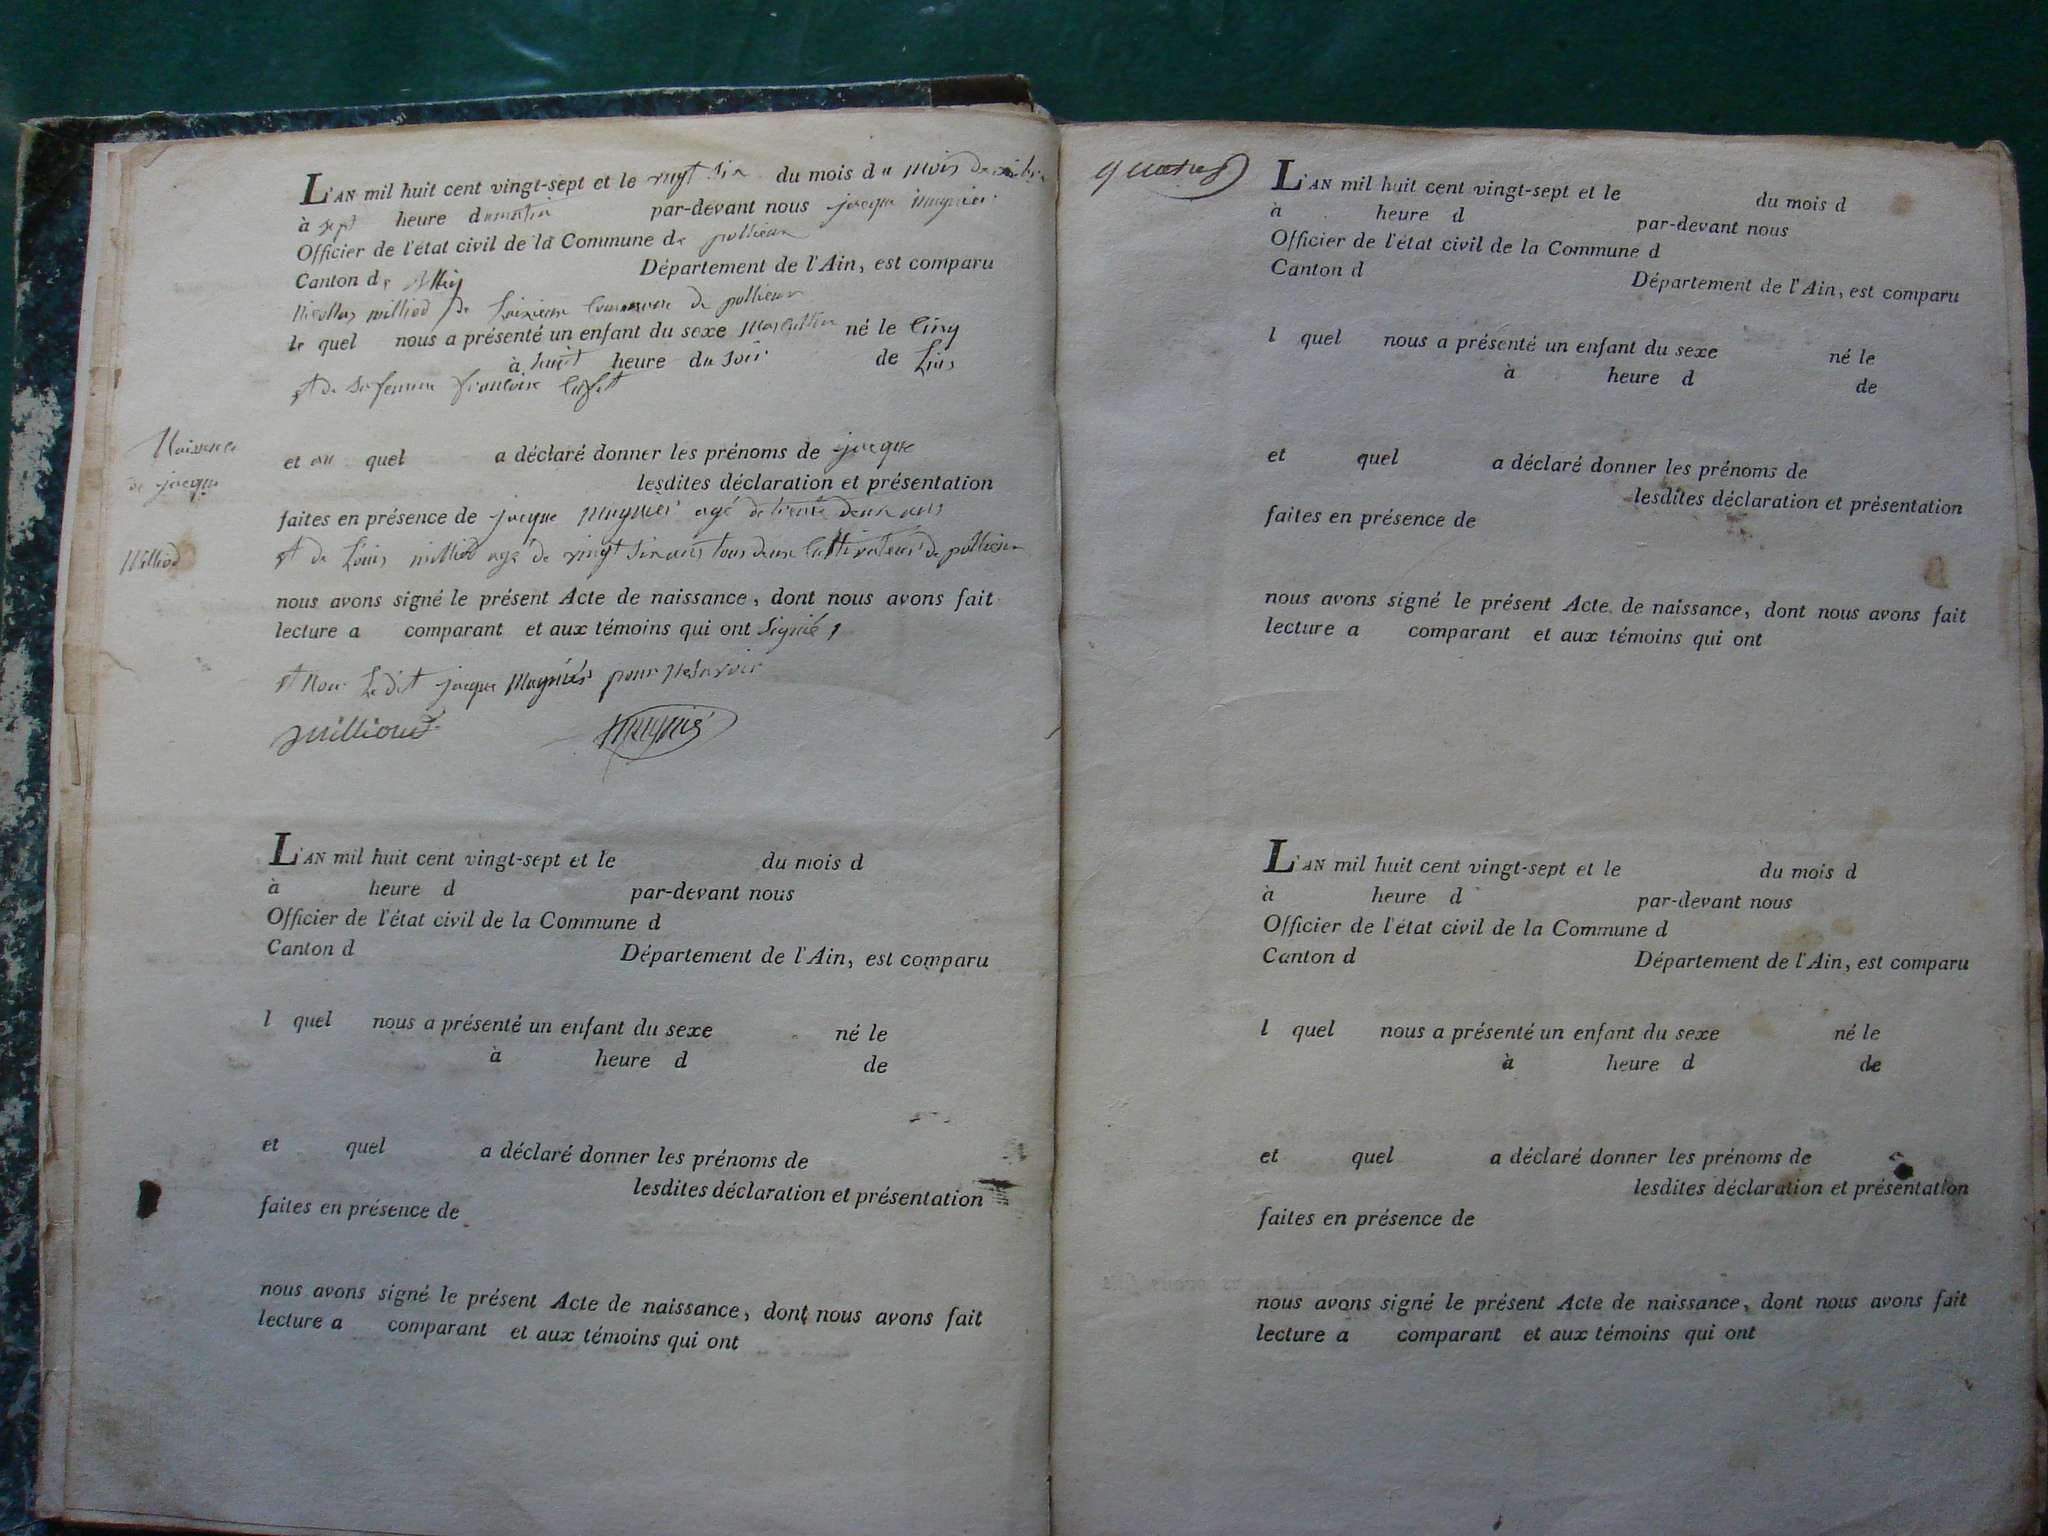 L'AN mil huit cent vingt-sept et le vingt six du mois du mois de
à sept heure du matin par-devant nous jacque mugnier
Officier de l'état civil de la Commune de pollieux
Canton de Département de l'Ain, est comparu
Nicollas milliod de commune de pollieux
le quel nous a présenté un enfant du sexe masculin né le Cinq
à huit heure du soir de Lui
et de sa femme francoise
Naissence
de jacque
Milliod
et au quel a déclaré donner les prénoms de jacque
lesdites déclaration et présentation
faites en présence de jacque mugnier agé de trente deux ans
et de Louis milliod agé de vingt six ans tous deux Cultivateurs de pollieux
nous avons signé le présent Acte de naissance, dont nous avons fait
lecture a comparant et aux témoins qui ont signié
et Non Le dit jacque Mugnier pour ne savoir
milliod mugnié
L'AN mil huit cent vingt-sept et le du mois d
à heure d par-devant nous
Officier de l'état civil de la Commune d
Canton d Département de l'Ain, est comparu
l quel nous a présenté un enfant du sexe né le
à heure d de
et quel a déclaré donner les prénoms de
lesdites déclaration et présentation
faites en présence de
nous avons signé le présent Acte de naissance, dont nous avons fait
lecture a comparant et aux témoins qui ont
L'AN mil huit cent vingt-sept et le du mois d
à heure d par-devant nous
Officier de l'état civil de la Commune d
Canton d Département de l'Ain, est comparu
l quel nous a présenté un enfant du sexe né le
à heure d de
et quel a déclaré donner les prénoms de
lesdites déclaration et présentation
faites en présence de
nous avons signé le présent Acte de naissance, dont nous avons fait
lecture a comparant et aux témoins qui ont
L'AN mil huit cent vingt-sept et le du mois d
à heure d par-devant nous
Officier de l'état civil de la Commune d
Canton d Département de l'Ain, est comparu
l quel nous a présenté un enfant du sexe né le
à heure d de
et quel a déclaré donner les prénoms de
lesdites déclaration et présentation
faites en présence de
nous avons signé le présent Acte de naissance, dont nous avons fait
lecture a comparant et aux témoins qui ont